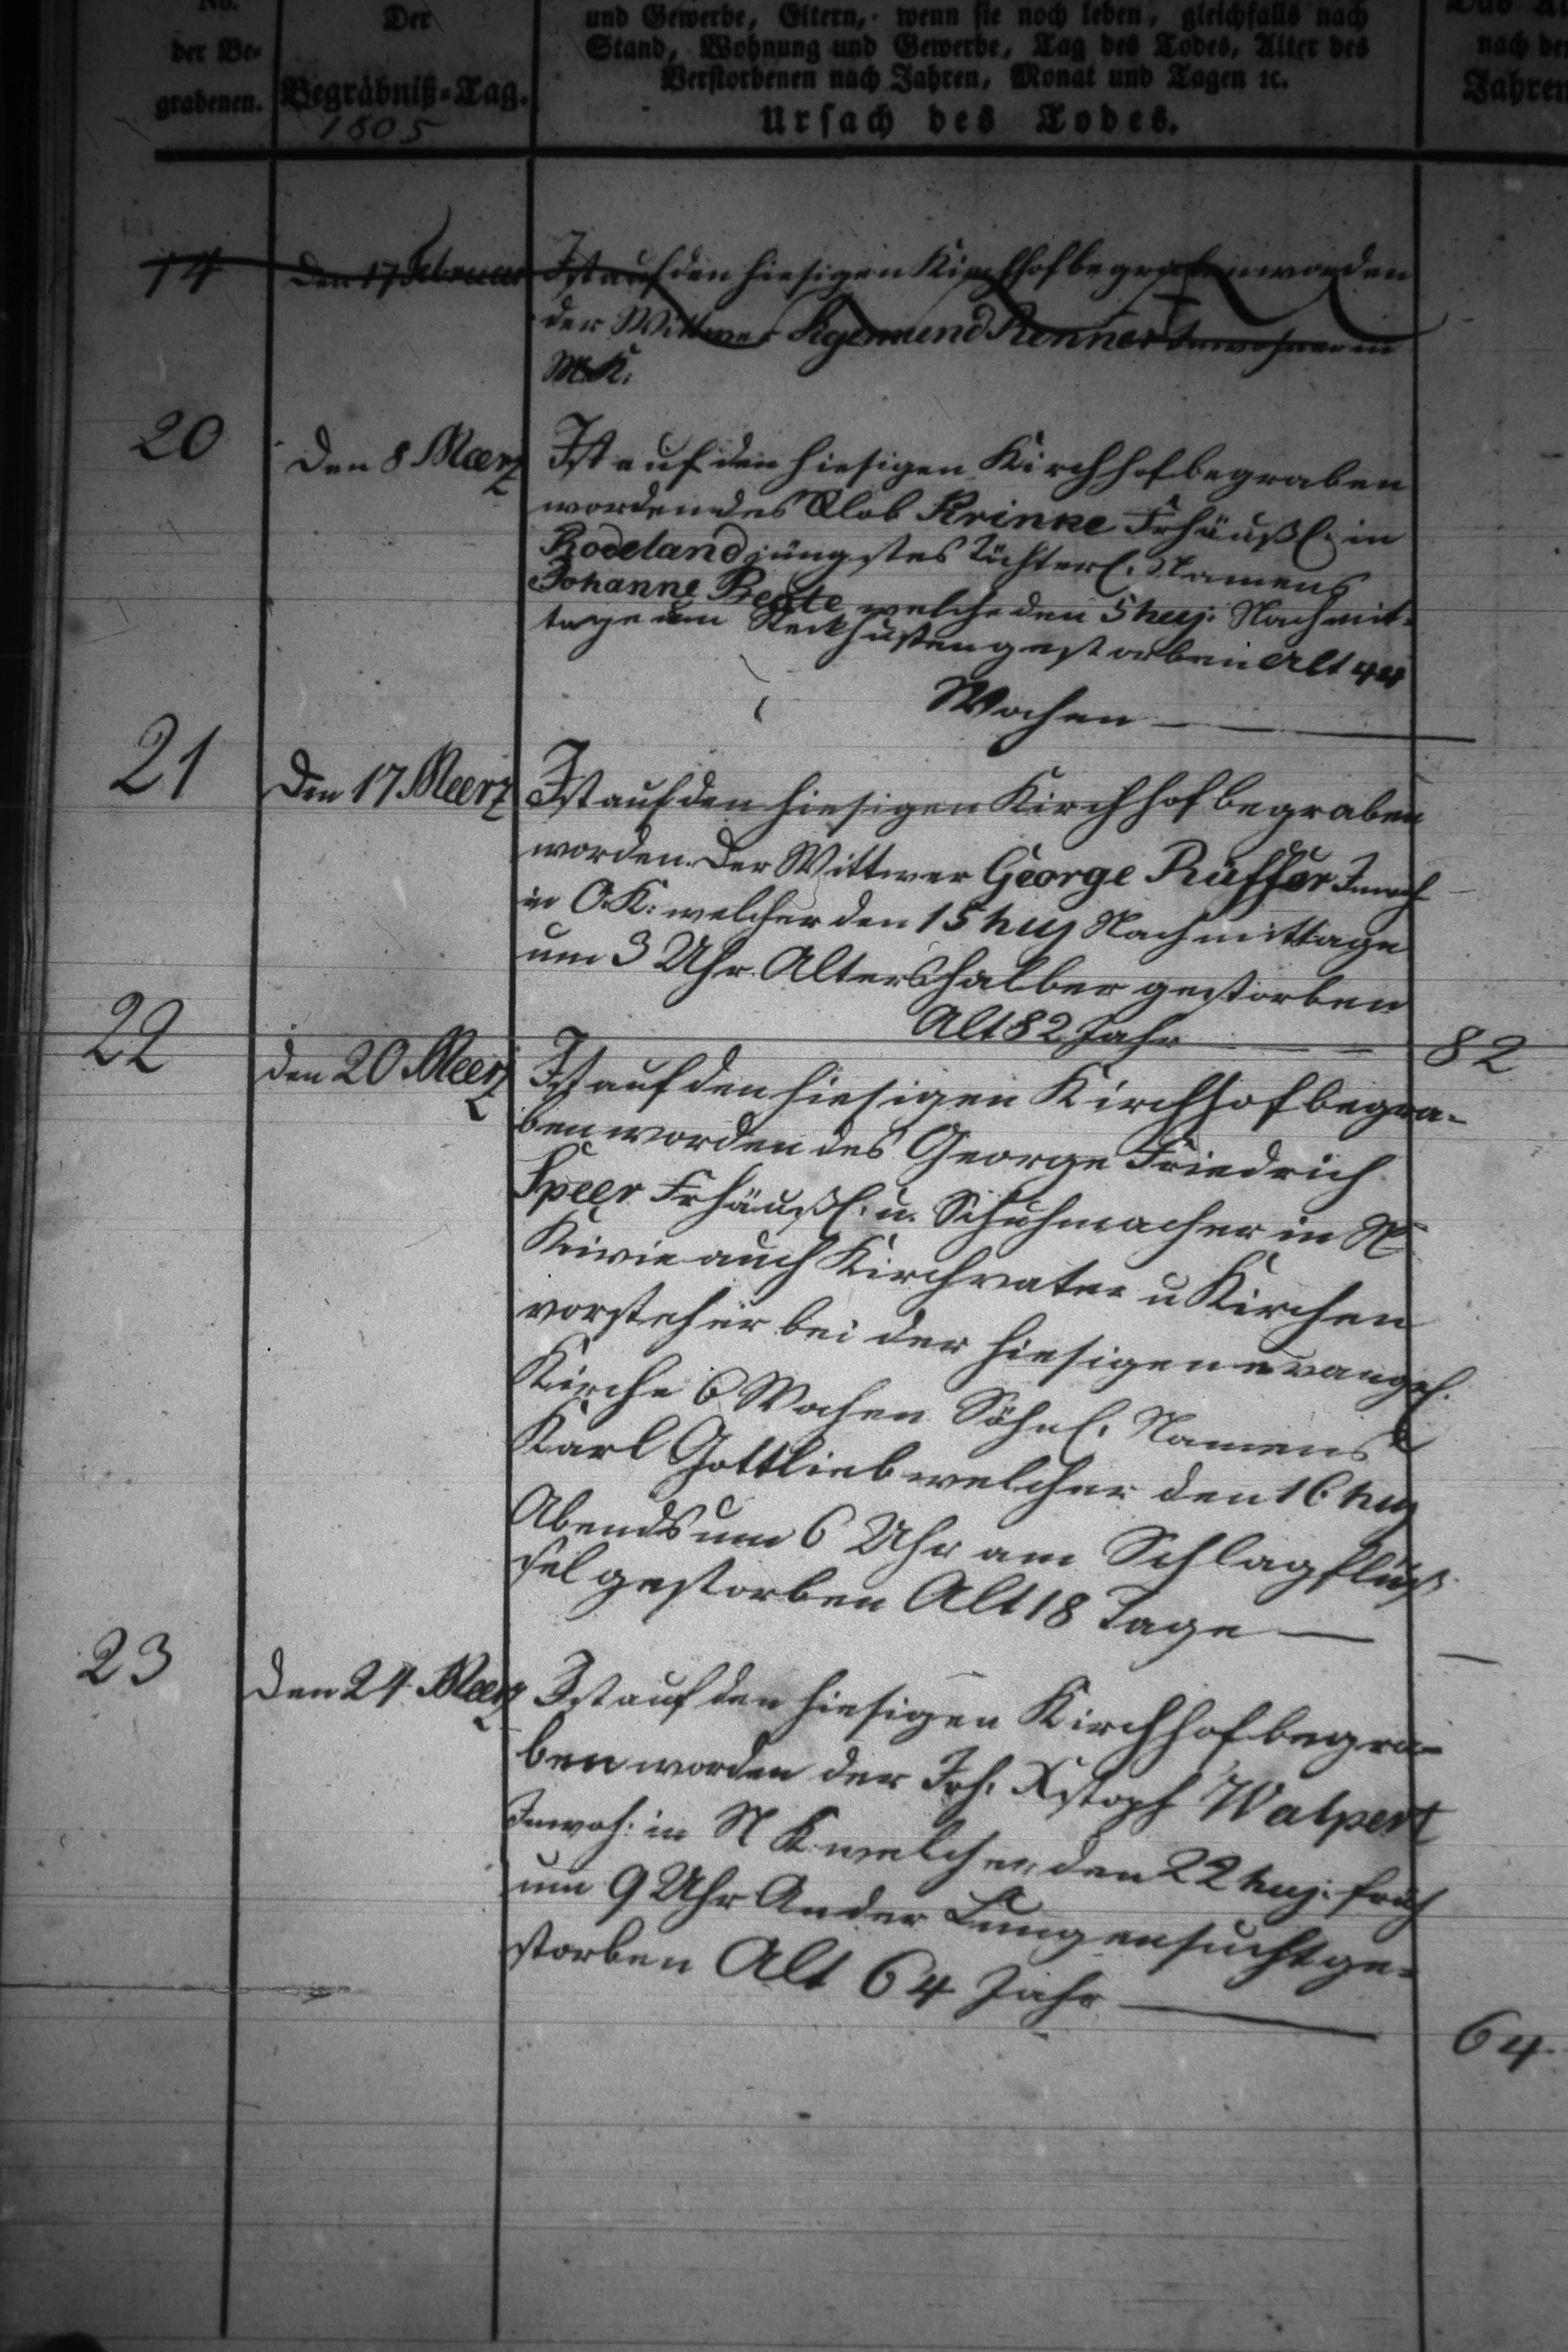 No.
der Be-
grabenen.
Der
Begräbniß-Tag.
1805
und Gewerbe, Eltern, wenn sie noch leben, gleichfalls nach
Stand, Wohnung und Gewerbe, Tag des Todes, Alter des
Verstorbenen nach Jahren, Monat und Tagen ꝛc.
Ursach des Todes.
nach de
Jahren
14 Den 17 Februar Ist auf den hiesigen Kirchhof begraben worden
der Wittwer Sigemund Renner Inwohner in
M.K.
20 Den 8 Maerz Ist auf den hiesigen Kirchhof begraben
worden des Krinke Frhäußl. in
Rodeland jüngstes Töchterl. Namens
Johanne Beate welche den 5 huj. Nachmit-
tage am Steckhusten gestorben Alt 44
Wochen
21 Den 17 Meerz Ist auf den hiesigen Kirchhof begraben
worden. Der Wittwer George Rüffer Inwoh
in O.K: welcher den 15 huj Nachmittage
um 3 Uhr Altershalber gestorben
Alt 82 Jahr 82
22 den 20 Meerz Ist auf den hiesigen Kirchhof begra-
ben worden des George Friedrich
Speer Frhäußl. u. Schuhmacher in N
K wie auch Kirchvater u Kirchen
vorsteher bei der hiesigen evangel.
Kirche 6 Wochen Söhnl. Namens
Karl Gottlieb welcher den 16 huj
Abends um 6 Uhr am Schlagflüß
sel gestorben Alt 18 Tage
23 Den 24 Meerz Ist auf den hiesigen Kirchhof begra-
ben worden der Joh. Xstoph Walpert
Inwoh: in N K welcher den 22 huj. früh
um 9 Uhr An der Lungensucht ge-
storben Alt 64 Jahr
64